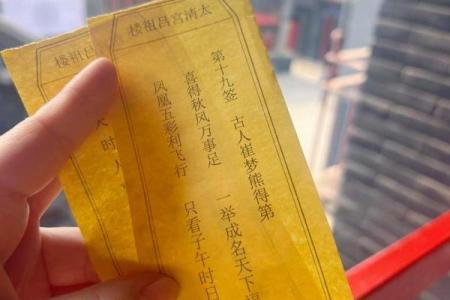 太清宫吕祖楼
第十九签 古人崔梦熊得第
喜得秋风万事足 一举成名天下
凤凰五彩利飞行 只看子午时日
宫吕祖楼
时人